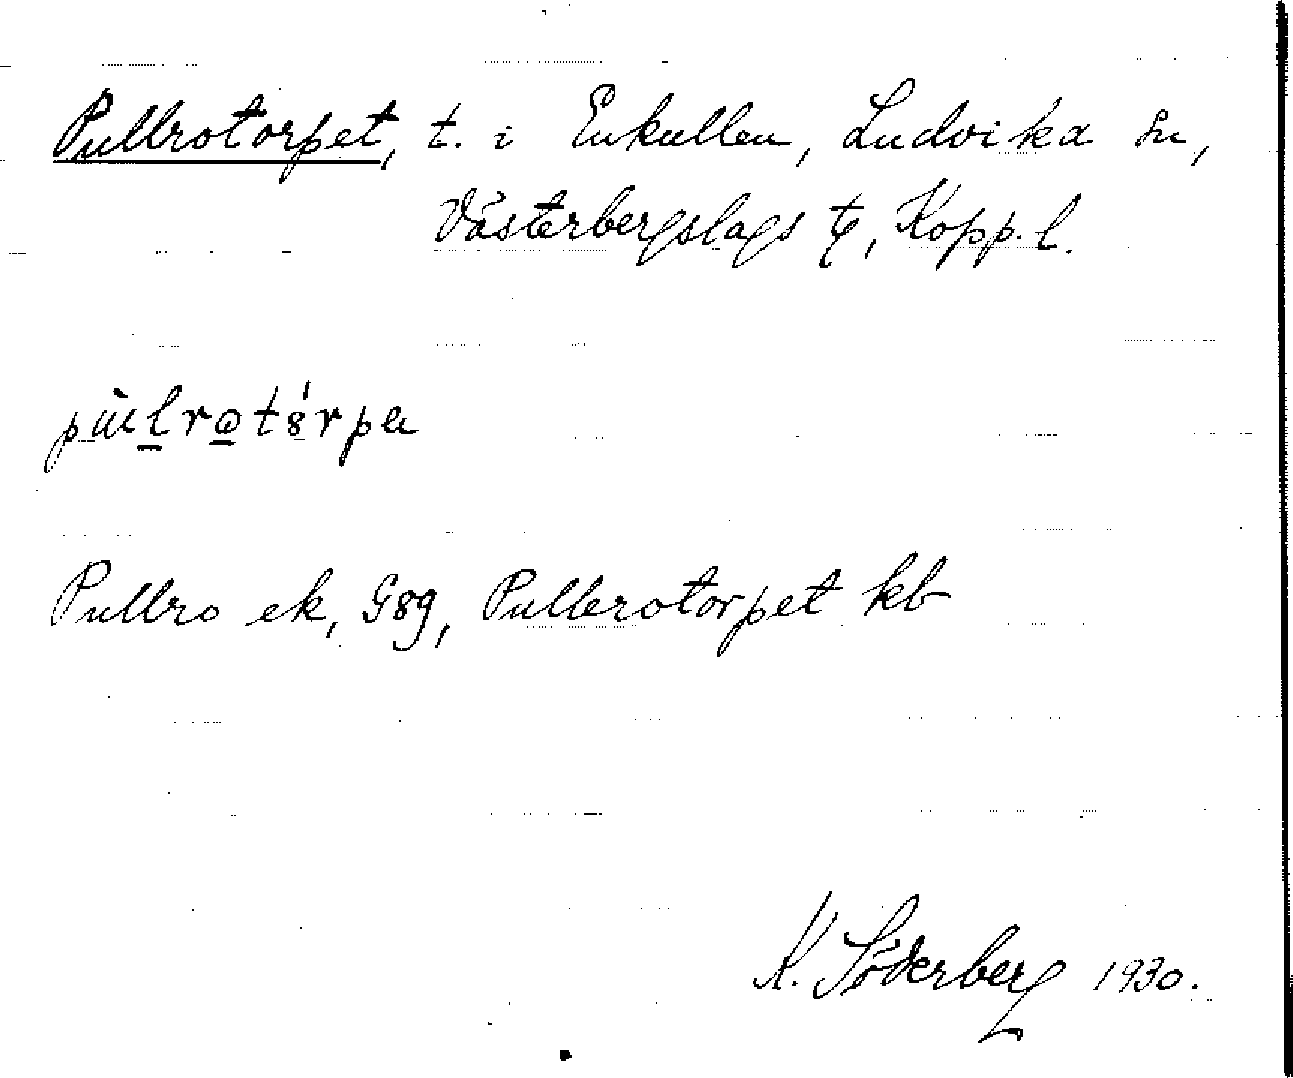 Pullrotorpet, t. i Enkullen, Ludvika sn,
Västerbergslags tg, Kopp. l.
pùlrotórpa
Pullro ek, Gsg, Pullerotorpet kb
K. Söderberg 1930.